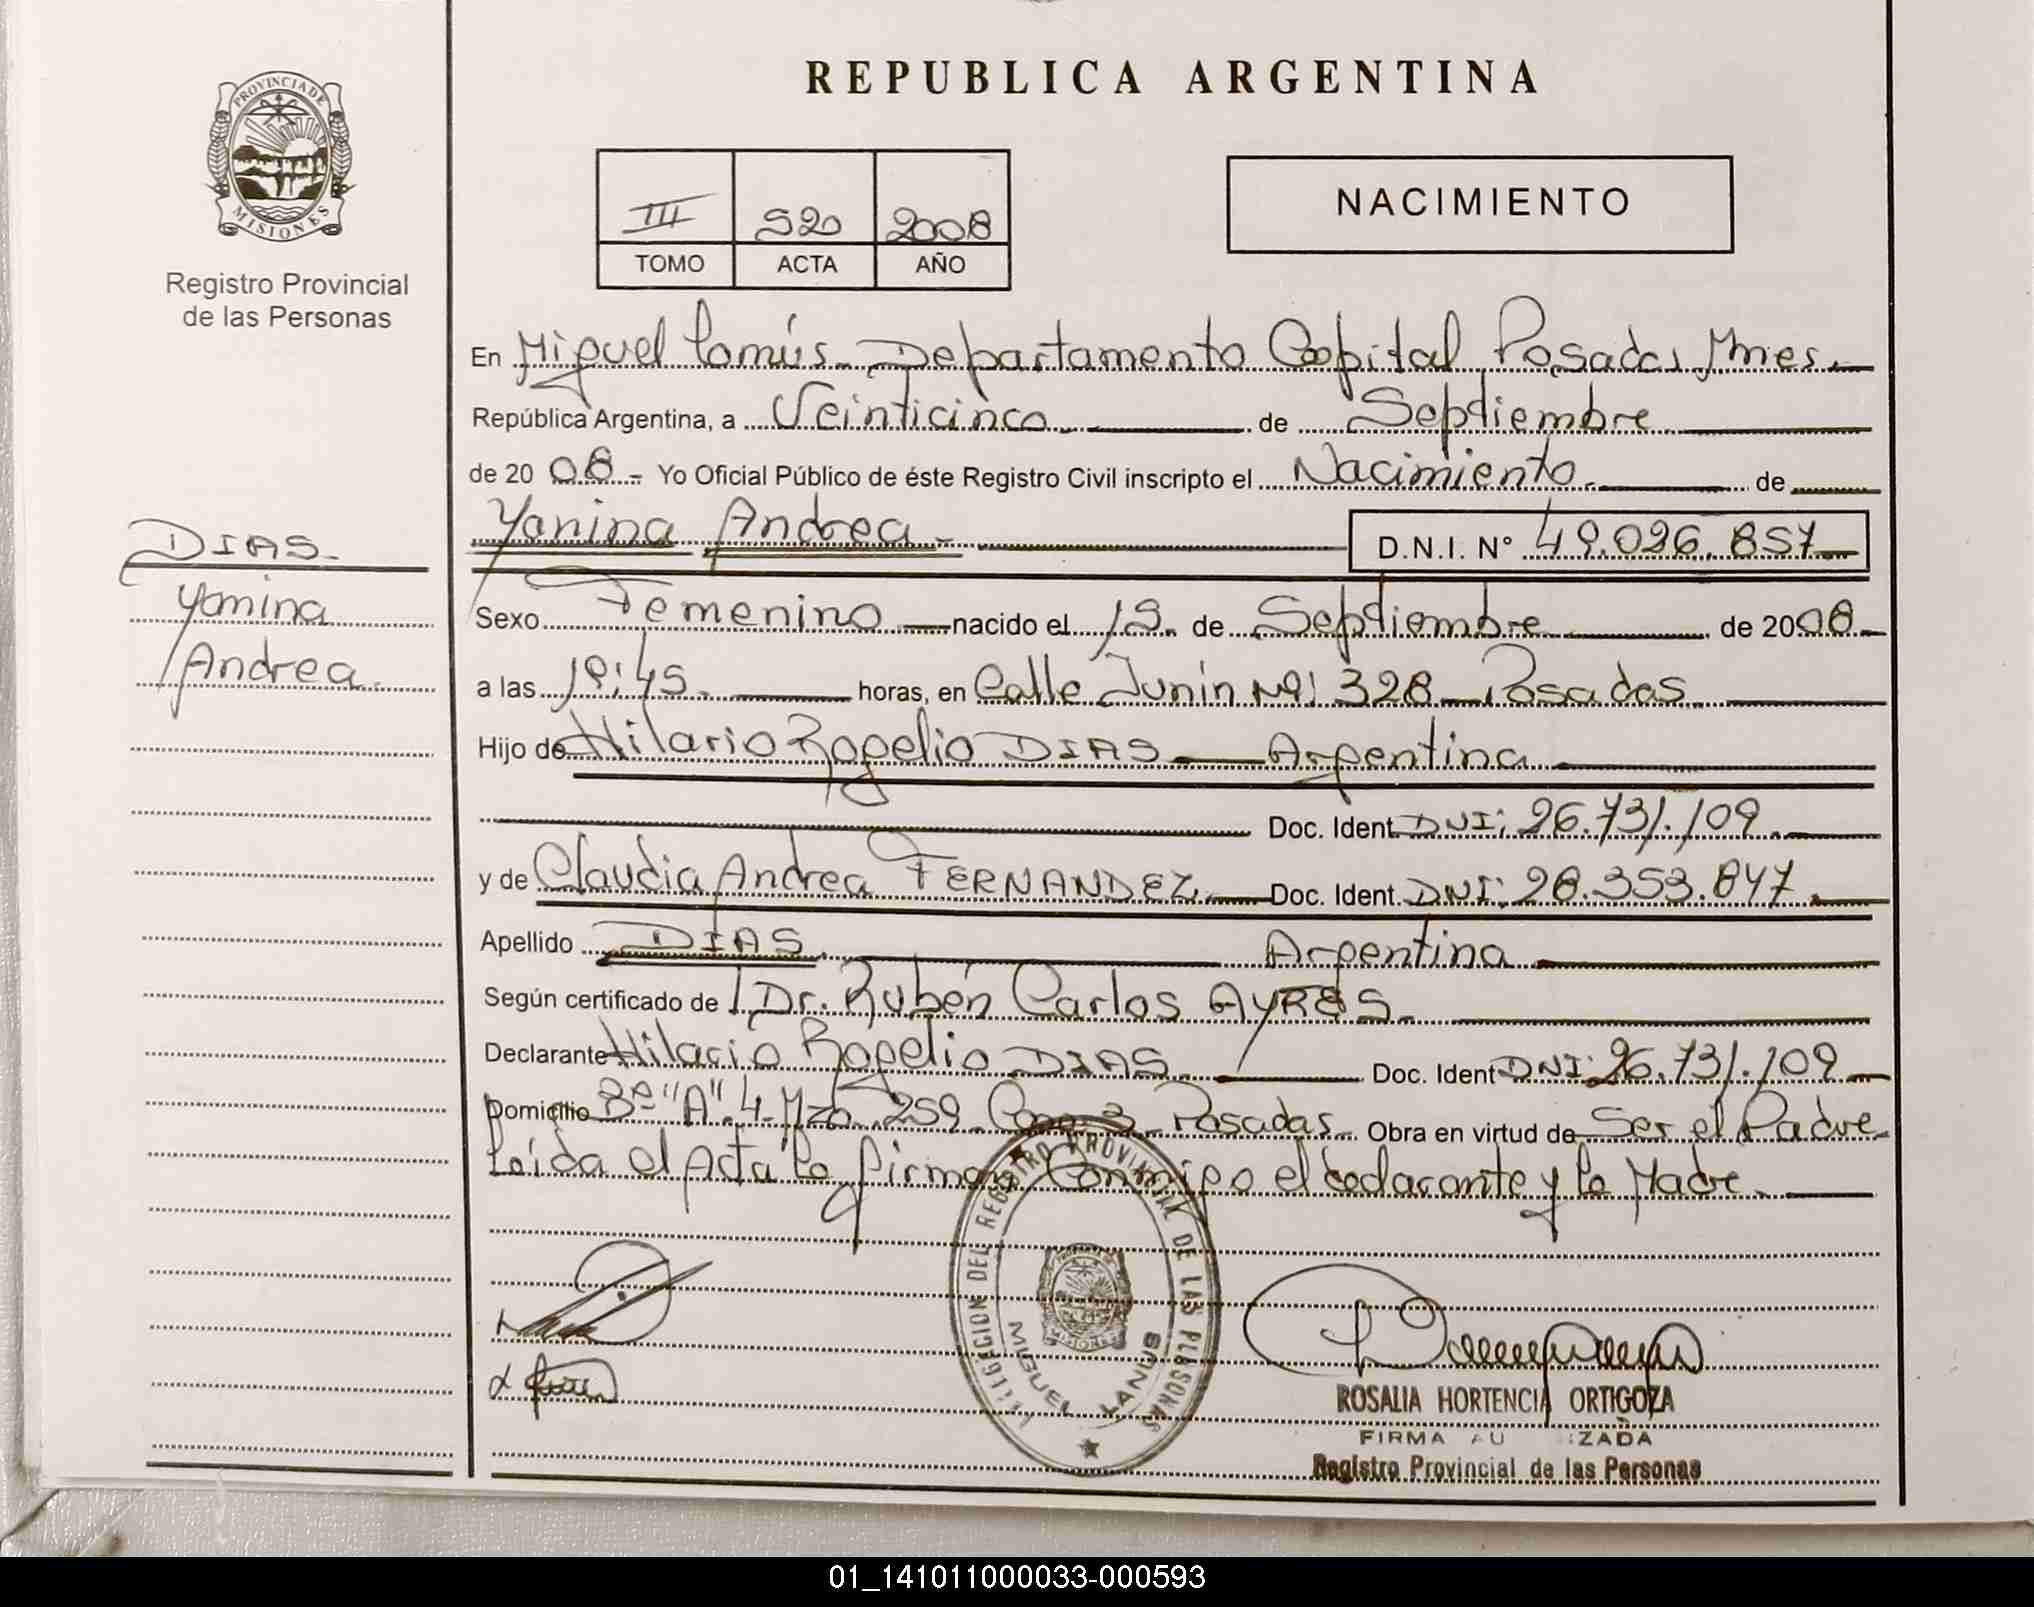 REPUBLICA ARGENTINA
PROVINCIA DE
MISIONES
Registro Provincial
de las Personas
III 520 2008
TOMO ACTA AÑO
NACIMIENTO
En Miguel Lanús - Departamento Capital Posadas Mnes.
República Argentina, a Veinticinco de Septiembre
de 2008.- Yo Oficial Público de éste Registro Civil inscripto el Nacimiento de
Yanina Andrea.- D.N.I. N° 49.026.857
DIAS.
Yanina
Andrea.
Sexo Femenino nacido el 12 de Septiembre de 2008.
a las 19:45. horas, en Calle Junín Nº 328 - Posadas
Hijo de Hilario Rogelio DIAS Argentina
Doc. Ident. DNI: 26.731.109
y de Claudia Andrea FERNANDEZ. Doc. Ident. DNI: 28.353.847
Apellido DIAS Argentina
Según certificado de Dr. Rubén Carlos AYRES.
Declarante Hilario Rogelio DIAS Doc. Ident DNI: 26.731.109
Domicilio Bº "A" 4 Mza 259 Casa 3 Posadas Obra en virtud de Ser el Padre
Leída el Acta la firman Conmigo el declarante y la Madre.
REGISTRO PROVINCIAL DE LAS PERSONAS
MISIONES
MIGUEL LANUS
ROSALIA HORTENCIA ORTIGOZA
FIRMA AU ZADA
Registro Provincial de las Personas
01_141011000033-000593